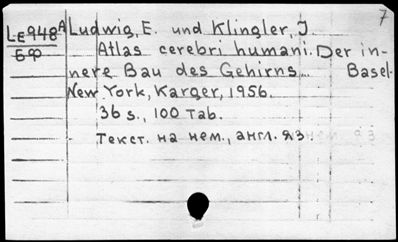 7
LE948A Ludwig, E. und Klingler, J.
БФ Atlas cerebri humani. Der in-
nere Bau des Gehirns... Basel-
New York, Karger, 1956.
36 s., 100 Tab.
Текст. на нем., англ. яз.